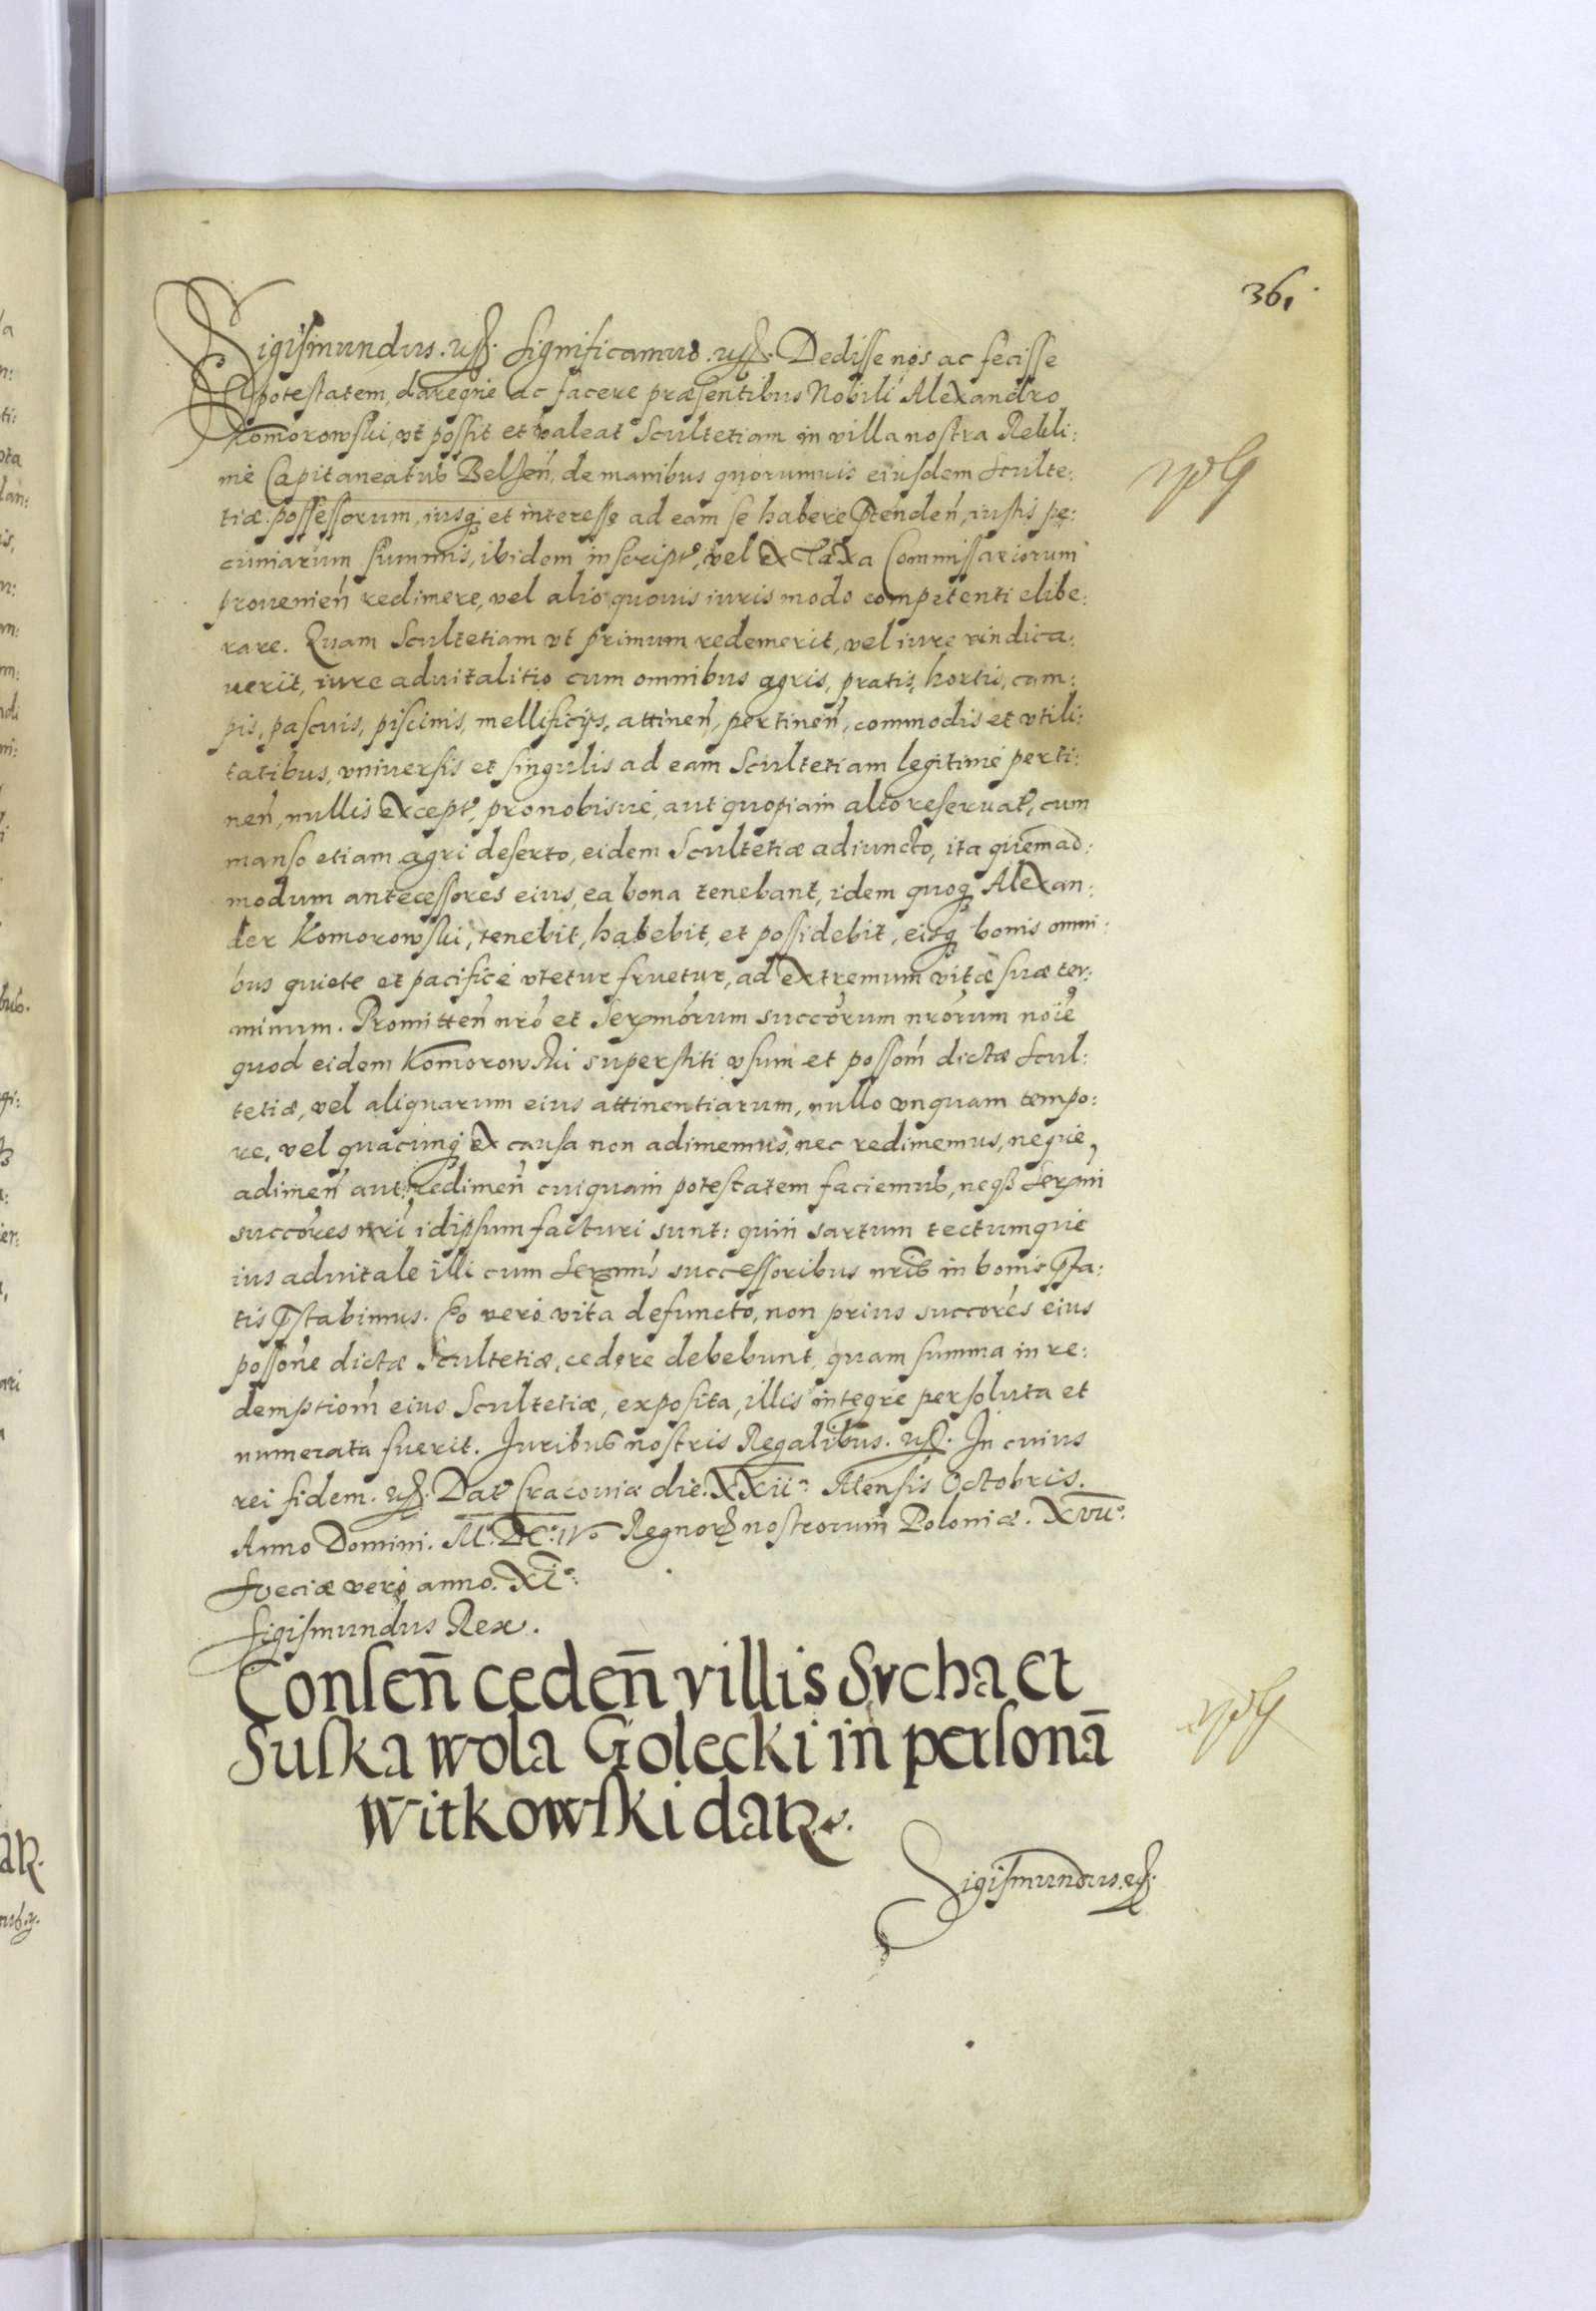 36,
Sigismundus. etc. Significamus. etc. Dedisse nos ac fecisse
potestatem, dareque ac facere præsentibus Nobili Alexandro
Komorowski, ut possit et valeat Scultetiam in villa nostra Rekli:
nie Capitaneatus Belsen̄, de manibus quorumuis eiusdem Sculte:
tiæ possessorum, iusq; et interesse ad eam se habere p̄tenden̄, iustis pe:
cuniarum summis, ibidem inscript', vel ex Taxa Commissariorum
prouenien̄ redimere, vel alio quouis iuris modo competenti elibe:
rare. Quam Scultetiam ut primum redemerit, vel iure vindica:
uerit, iure aduitalitio cum omnibus agris, pratis, hortis, cam:
pis, pascuis, piscinis, mellificijs, attinen̄, pertinen̄, commodis et vtili:
tatibus, vniuersis et singulis ad eam Scultetiam legitimè perti:
nen̄, nullis except', pro nobisué, aut quopiam alto reseruat', cum
manso etiam agri deserto, eidem Scultetiæ adiuncto, ita quemad:
modum antecessores eius, ea bona tenebant, idem quoq; Alexan:
der Komorowski, tenebit, habebit, et possidebit, eisq; bonis omni:
bus quiete et pacificè vtetur fruetur, ad extremum vitæ suæ ter:
minum. Promitten̄ nr̄o et Ser̄morum succōrum nr̄orum noīe
quod eidem Komorowski superstiti vsum et possōm dictæ Scul:
tetiæ, vel aliquarum eius attinentiarum, nullo vnquam tempo:
re, vel quacunq; ex causa non adimemus, nec redimemus, neque,
adimen̄ aut redimen̄ cuiquam potestatem faciemus, neqȝ Ser̄mi
succōres nr̄i idipsum facturi sunt: quin sartum tectumque
ius aduitale illi cum Ser̄mis successoribus nr̄is in bonis p̄fa:
tis p̄stabimus. Eo verò vita defuncto, non prius succōres eius
possōne dictæ Scultetiæ, cedere debebunt, quam summa in re:
demptiōm eius Scultetiæ, exposita, illis integrè persoluta et
numerata fuerit. Juribus nostris Regalibus. etc. In cuius
rei fidem. etc. Dat' Cracouiæ die. XXii.ª Mensis Octobris.
Anno Domini. M.º DC.º iv.º Regnorꝝ nostrorum Poloniæ. Xvii.º
Sveciæ verò anno. Xi.º
Sigismundus Rex.
Consen̄ ceden̄ villis Sucha et
Suska wola Golecki in personā
Witkowski daR.
Sigismundus. etc.